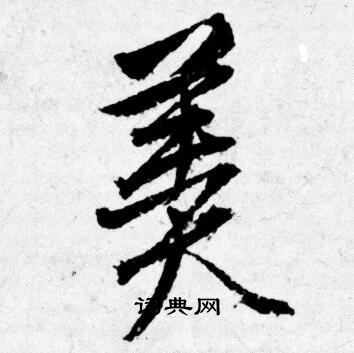 美
词典网